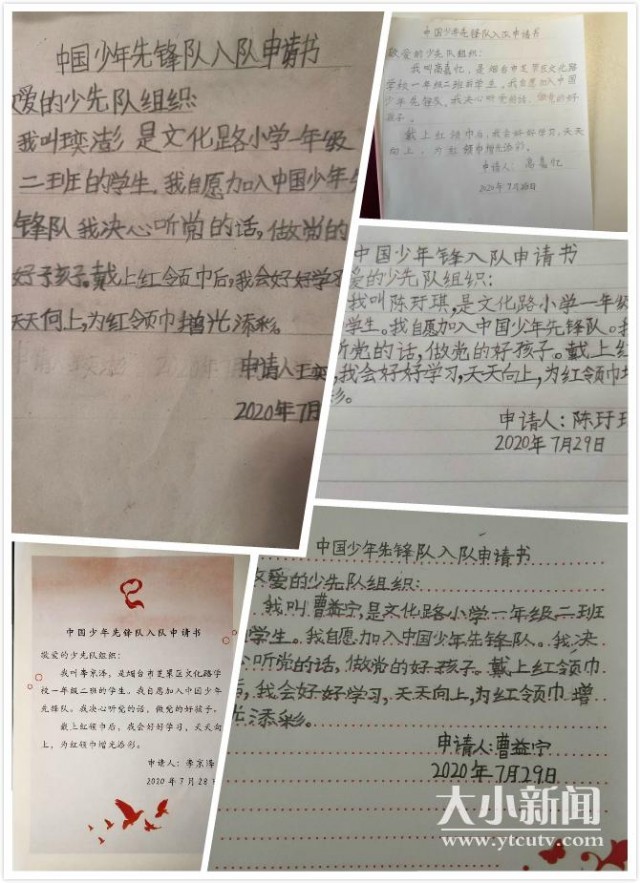 中国少年先锋队入队申请书
爱的少先队组织:
我叫奕澎 是文化路小学一年级
二班的学生。我自愿加入中国少年先
锋队 我决心听党的话,做党的
好孩子。戴上红领巾后,我会好好学习
天天向上,为红领巾增光添彩。
申请人王奕
2020年7月
中国少年先锋队入队申请书
敬爱的少先队组织:
我叫高嘉忆,是烟台市芝罘区文化路
学校一年级二班的学生。我自愿加入中国
少年先锋队。我决心听党的话,做党的好
孩子。
戴上红领巾后,我会好好学习,天天
向上,为红领巾增光添彩。
申请人:高嘉忆
2020年7月28日
中国少年锋队入队申请书
爱的少先队组织:
我叫陈玗琪,是文化路小学一年级
学生。我自愿加入中国少年先锋队。我
听党的话,做党的好孩子。戴上红
我会好好学习,天天向上,为红领巾增
彩。
申请人:陈玗琪
2020年7月29日
中国少年先锋队入队申请书
敬爱的少先队组织:
我叫李京泽,是烟台市芝罘区文化路学
校一年级二班的学生。我自愿加入中国少年
先锋队。我决心听党的话,做党的好孩子。
戴上红领巾后,我会好好学习,天天向
上,为红领巾增光添彩。
申请人:李京泽
2020年7月28日
中国少年先锋队入队申请书
敬爱的少先队组织:
我叫曹益宁,是文化路小学一年级二班
的学生。我自愿加入中国少年先锋队。我决
心听党的话,做党的好孩子。戴上红领巾
后,我会好好学习,天天向上,为红领巾增
光添彩。
申请人:曹益宁
2020年7月29日
大小新闻
www.ytcutv.com